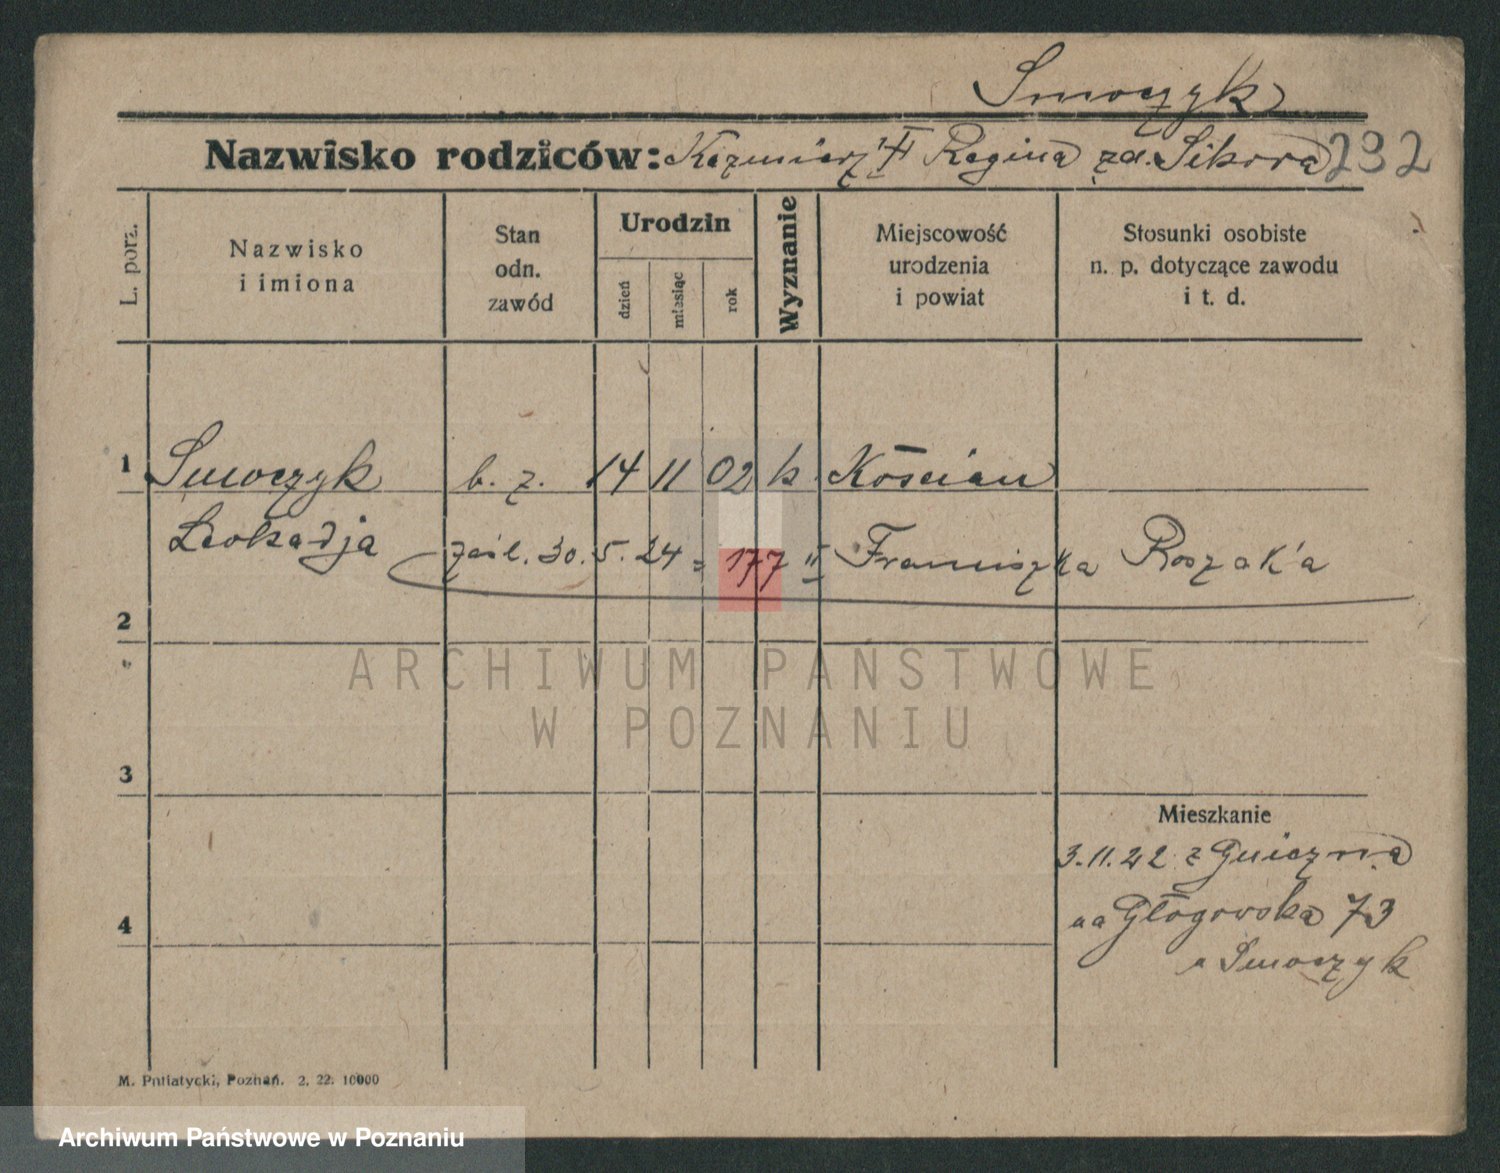 Smoczyk
Nazwisko rodziców: Kazmierz Regina zd. Sikora 232
L. porz.
Nazwisko
i imiona
Stan
odn.
zawód
Urodzin
dzień
miesiąc
rok
Wyznanie
Miejscowość
urodzenia
i powiat
Stosunki osobiste
n. p. dotyczące zawodu
i t. d.
1 Smoczyk b. z. 14 11 02 k Kościan
Leokadja zaśl. 30. 5. 24 = 177 II Franciszka Roszak'a
2
3
Mieszkanie
3.11.22 z Gniezna
4 na Głogowska 73
u Smoczyk
M. Putiatycki, Poznań. 2. 22. 10000
ARCHIWUM PAŃSTWOWE
W POZNANIU
Archiwum Państwowe w Poznaniu